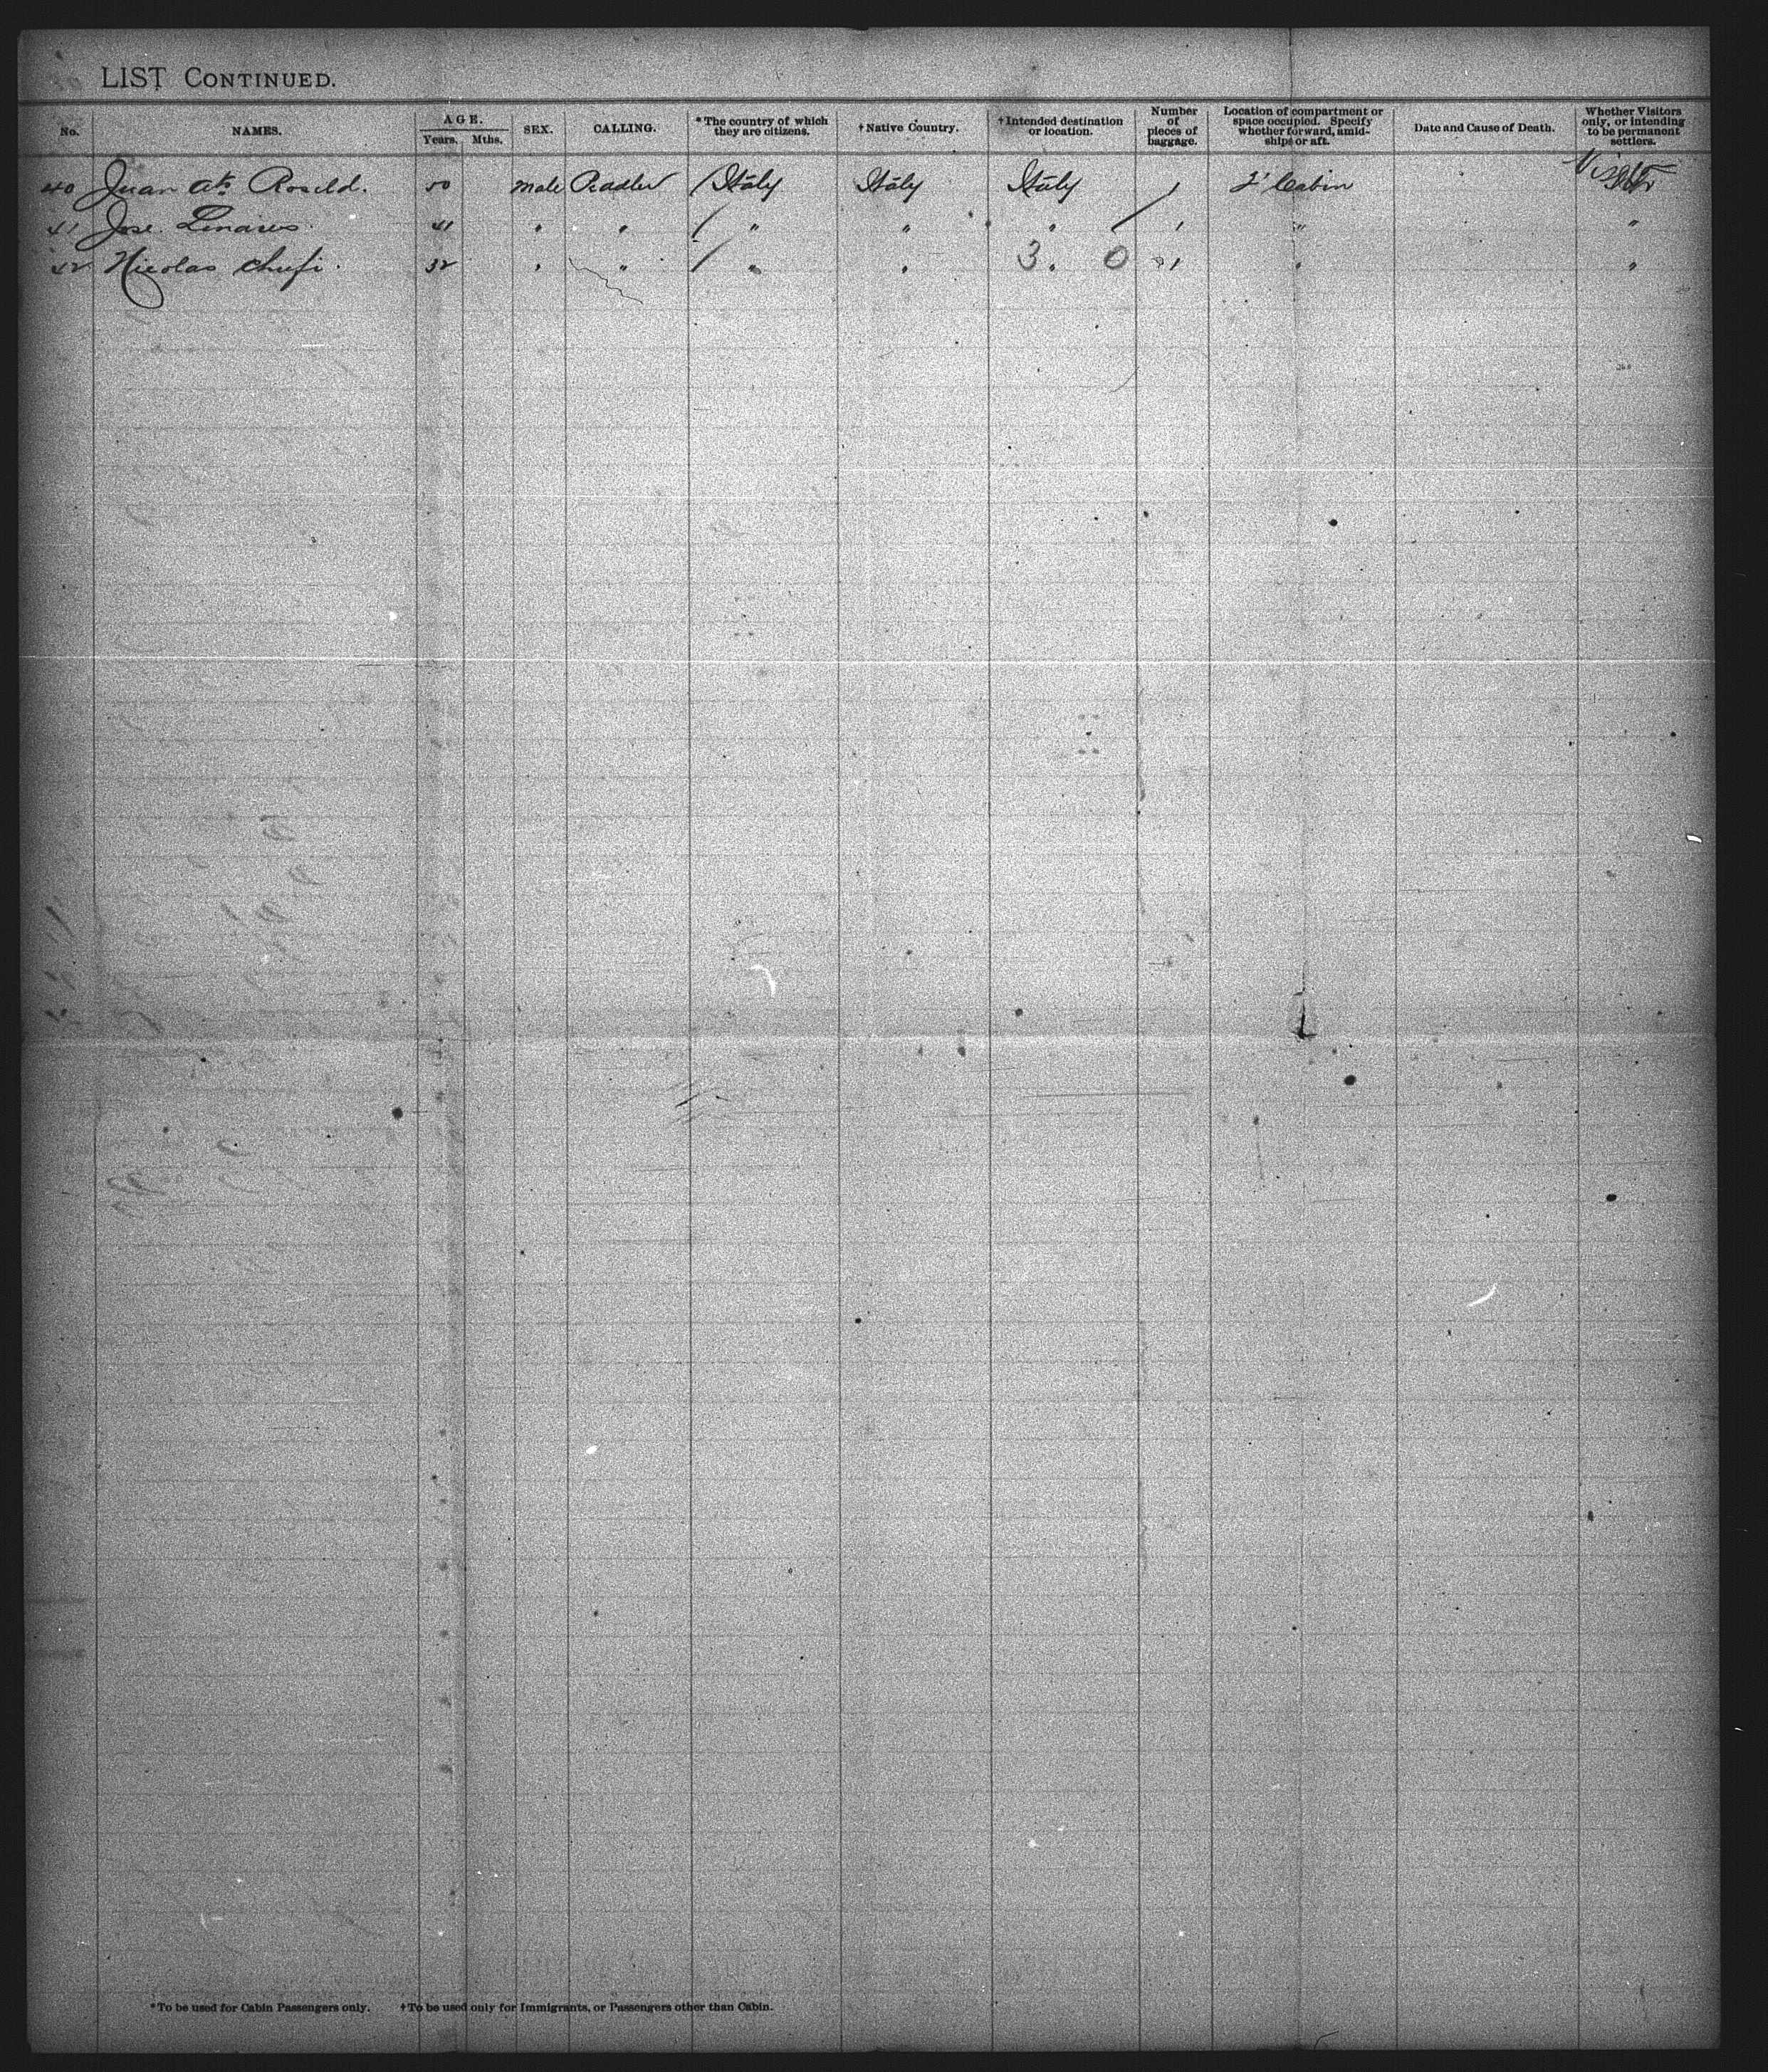 LIST CONTINUED.
No. NAMES. AGE. Years. Mths. SEX. CALLING. *The country of which they are citizens. †Native Country. †Intended destination or location. Number of pieces of baggage. Location of compartment or space occupied. Specify whether forward, amidships or aft. Date and Cause of Death. Whether Visitors only, or intending to be permanent settlers.
40 Juan 50 Male Peadler / Italy Italy Italy 1 2' Cabin
41 Jose Linares 41 " " / " " " / 1 " "
42 Nicolas Chufi 32 " " / " " 3 " 0 1 " "
*To be used for Cabin Passengers only. †To be used only for Immigrants, or Passengers other than Cabin.